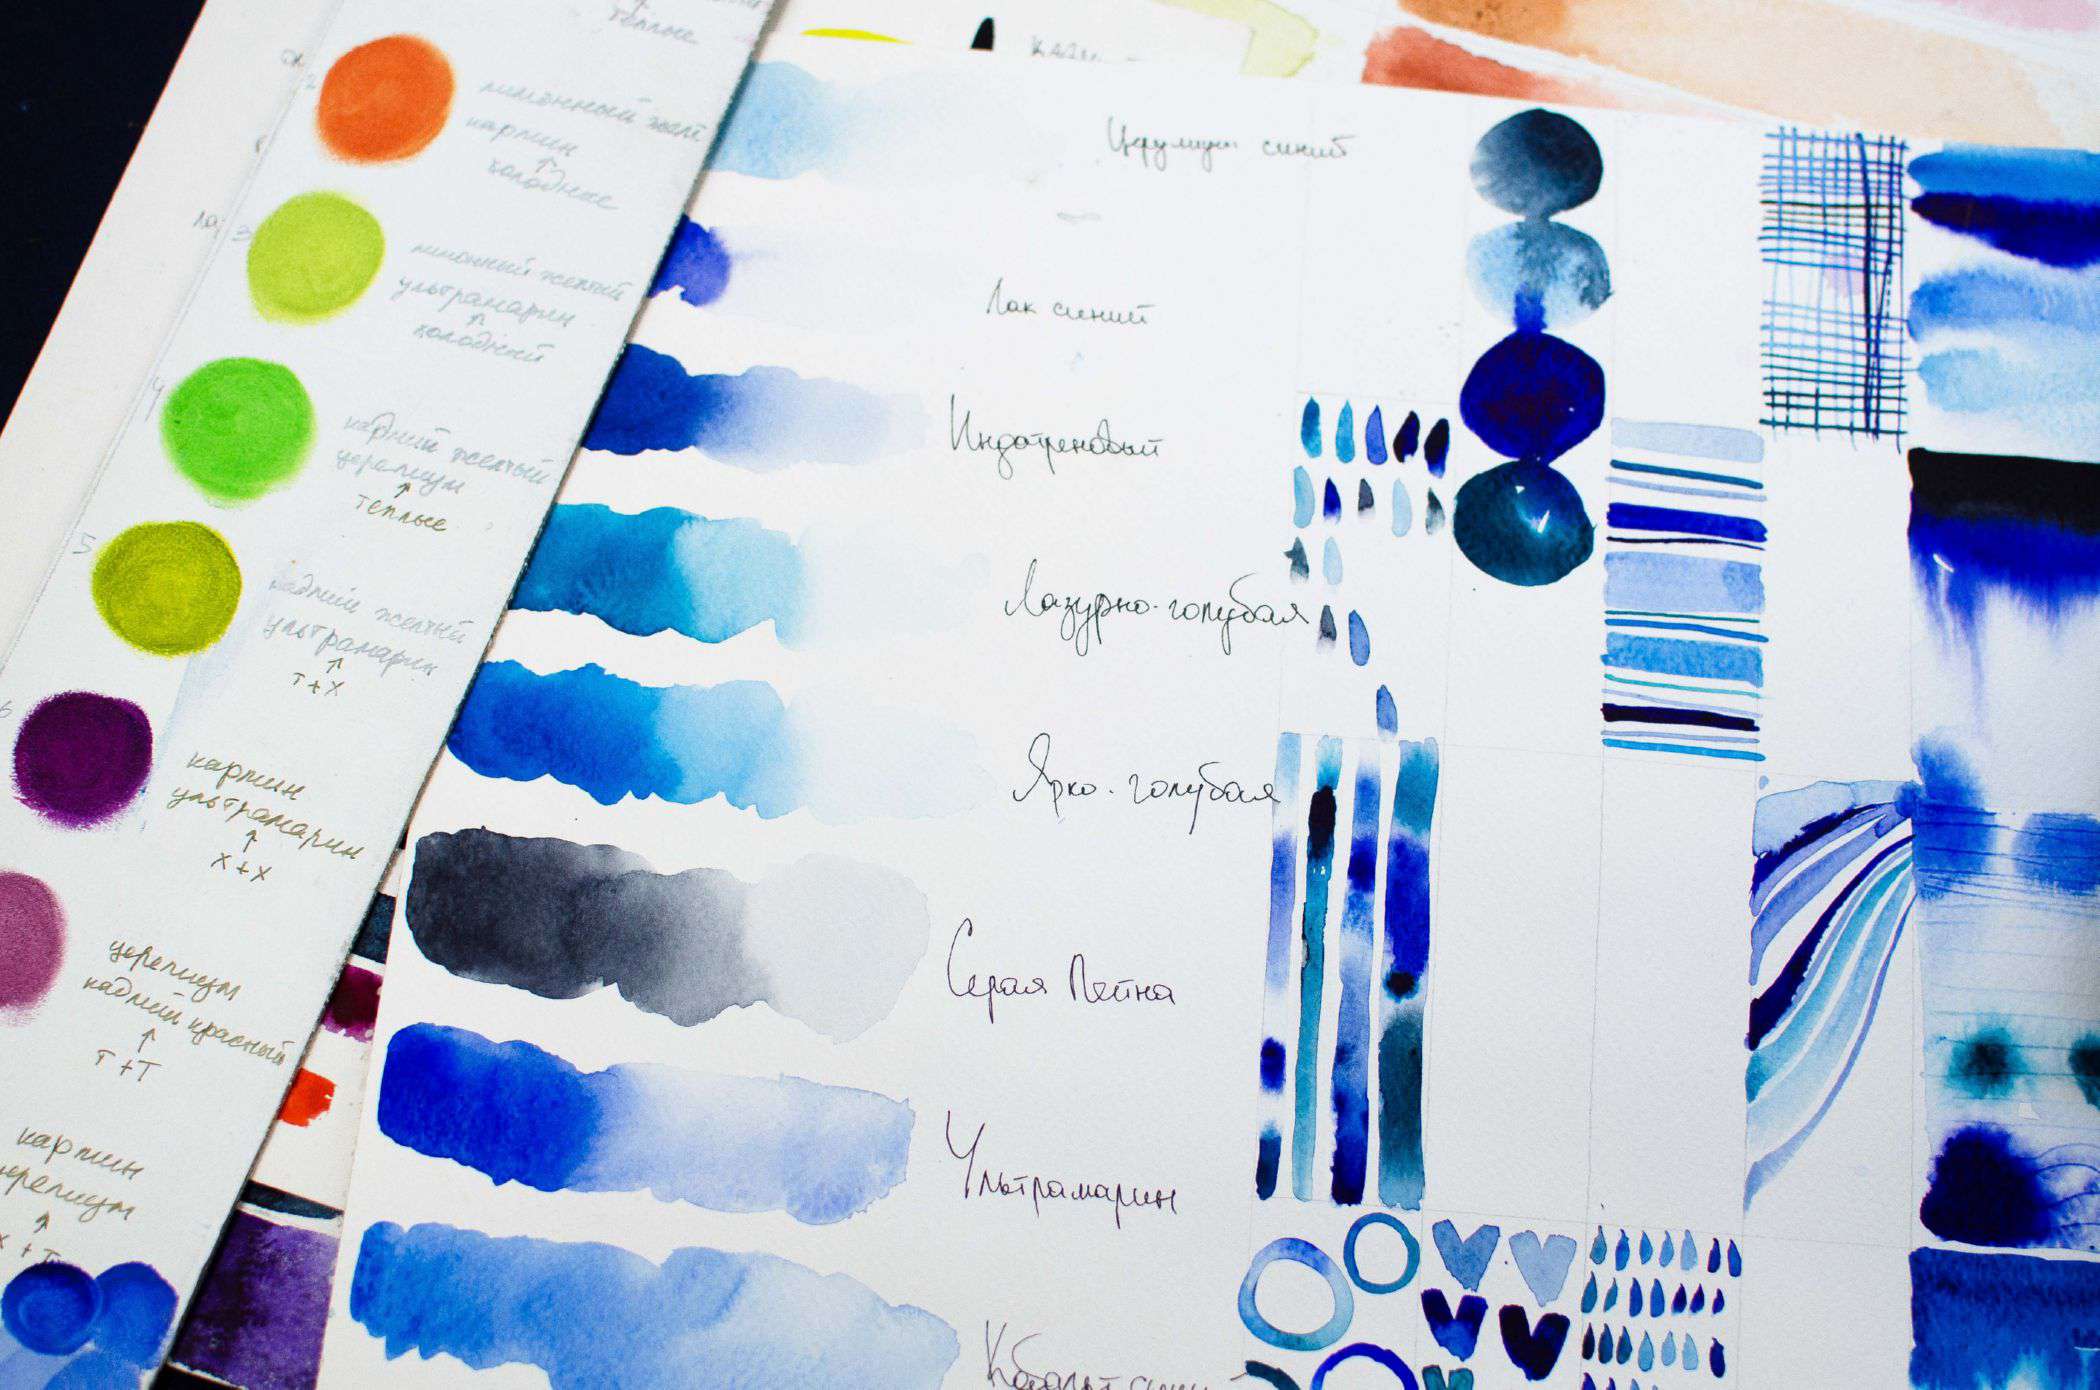 теплые
2
лимонный желт
кармин
↑
холодные
3
лимонный желтый
ультрамарин
↑
холодный
4
кадмий желтый
церелиум
↑
теплые
5
кадмий желтый
ультрамарин
↑
т+х
6
кармин
ультрамарин
↑
х+х
церелиум
кадмий красный
↑
т+т
кармин
церелиум
↑
х+т
Церулиум синий
Лак синий
Индатреновый
Лазурно-голубая
Ярко-голубая
Серая Пейна
Ультрамарин